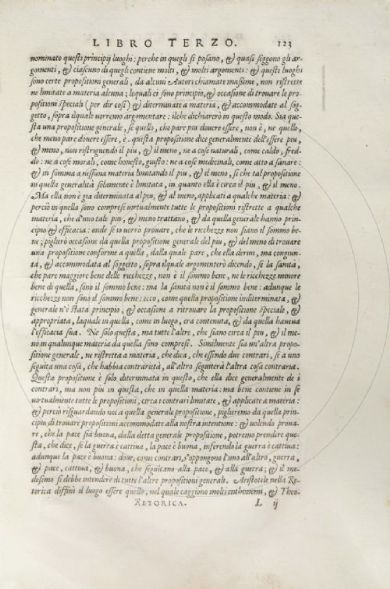 LIBRO TERZO. 123
nominato questi principij luoghi: perche in quegli si posano, & quasi seggono gli ar-
gomenti, & ciascuno di quegli contiene molti, & molti argomenti: & questi luoghi
sono certe propositioni generali, da alcuni Autori chiamate massime, non ristrette
ne limitate a materia alcuna; lequali ci sono principio, & occasione di trouare le pro
positioni speciali (per dir così) & diterminate a materia, & accommodate al sog-
getto, sopra ilquale uorremo argumentare: ilche dichiarerò in questo modo. Sia que-
sta una propositione generale, se quello, che pare piu douere essere, non è, ne quello,
che meno pare douere essere, è. questa propositione dice generalmente dell'essere piu,
& meno, non ristringendo il piu, & il meno, ne a cose naturali, come caldo, fred-
do: ne a cose morali, come honesto, giusto: ne a cose medicinali, come atto a sanare:
& in somma a nessuna materia limitando il piu, & il meno, si che tal propositione
in quella generalità solamente è limitata, in quanto ella è circa il piu, & il meno.
Ma ella non è gia diterminata al piu, & al meno, applicati a qualche materia: &
perciò in quella sono comprese uirtualmente tutte le propositioni ristrette a qualche
materia, che d'uno tale piu, & meno trattano, & da quella generale hanno prin-
cipio & efficacia: onde se io uorrò prouare, che le ricchezze non siano il sommo be-
ne; piglierò occasione da quella propositione generale del piu, & del meno di trouare
una propositione conforme a quella, dalla quale pare, che ella deriui, ma congiun-
ta, & accommodata al soggetto, sopra ilquale argomenterò dicendo, se la sanità,
che pare maggiore bene delle ricchezze, non è il sommo bene, ne le ricchezze minore
bene di quella, sono il sommo bene: ma la sanità non è il sommo bene: adunque le
ricchezze non sono il sommo bene: ecco, come quella propositione inditerminata, &
generale n'è stata principio, & occasione a ritrouare la propositione speciale, &
appropriata, laquale in quella, come in luogo, era contenuta, & da quella haueua
l'efficacia sua. Ne solo questa, ma tutte l'altre, che siano circa il piu, & il me-
no in qualunque materia da quella sono comprese. Similmente sia un'altra propo-
sitione generale, ne ristretta a materia, che dica, che essendo due contrari, se a uno
seguita una cosa, che habbia contrarietà, all'altro seguiterà l'altra cosa contraria.
Questa propositione è solo diterminata in questo, che ella dice generalmente de i
contrari, ma non piu in questa, che in quella materia: ma bene contiene in se
uirtualmente tutte le propositioni, circa i contrari limitate, & applicate a materia:
& perciò risguardando noi a quella generale propositione, piglieremo da quella prin-
cipio di trouare propositioni accommodate alla nostra intentione: & uolendo proua-
re, che la pace sia buona, dalla detta generale propositione, potremo prendere que-
sta, che dice, se la guerra è cattiua, la pace è buona, inferendo la guerra è cattiua:
adunque la pace è buona: doue, come contrari, s'oppongono l'uno all'altro, guerra,
& pace, cattiua, & buona, che seguitano alla pace, & alla guerra; & il me-
desimo si debbe intendere di tutte l'altre propositioni generali. Aristotele nella Re-
torica diffinì il luogo essere quello, nel quale caggiono molti enthimemi, & Theo-
RETORICA. L ij